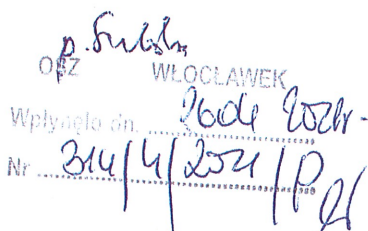 p.
OSZ WŁOCŁAWEK
Wpłynęło dn. 2021r.
Nr 314/4/2021/P